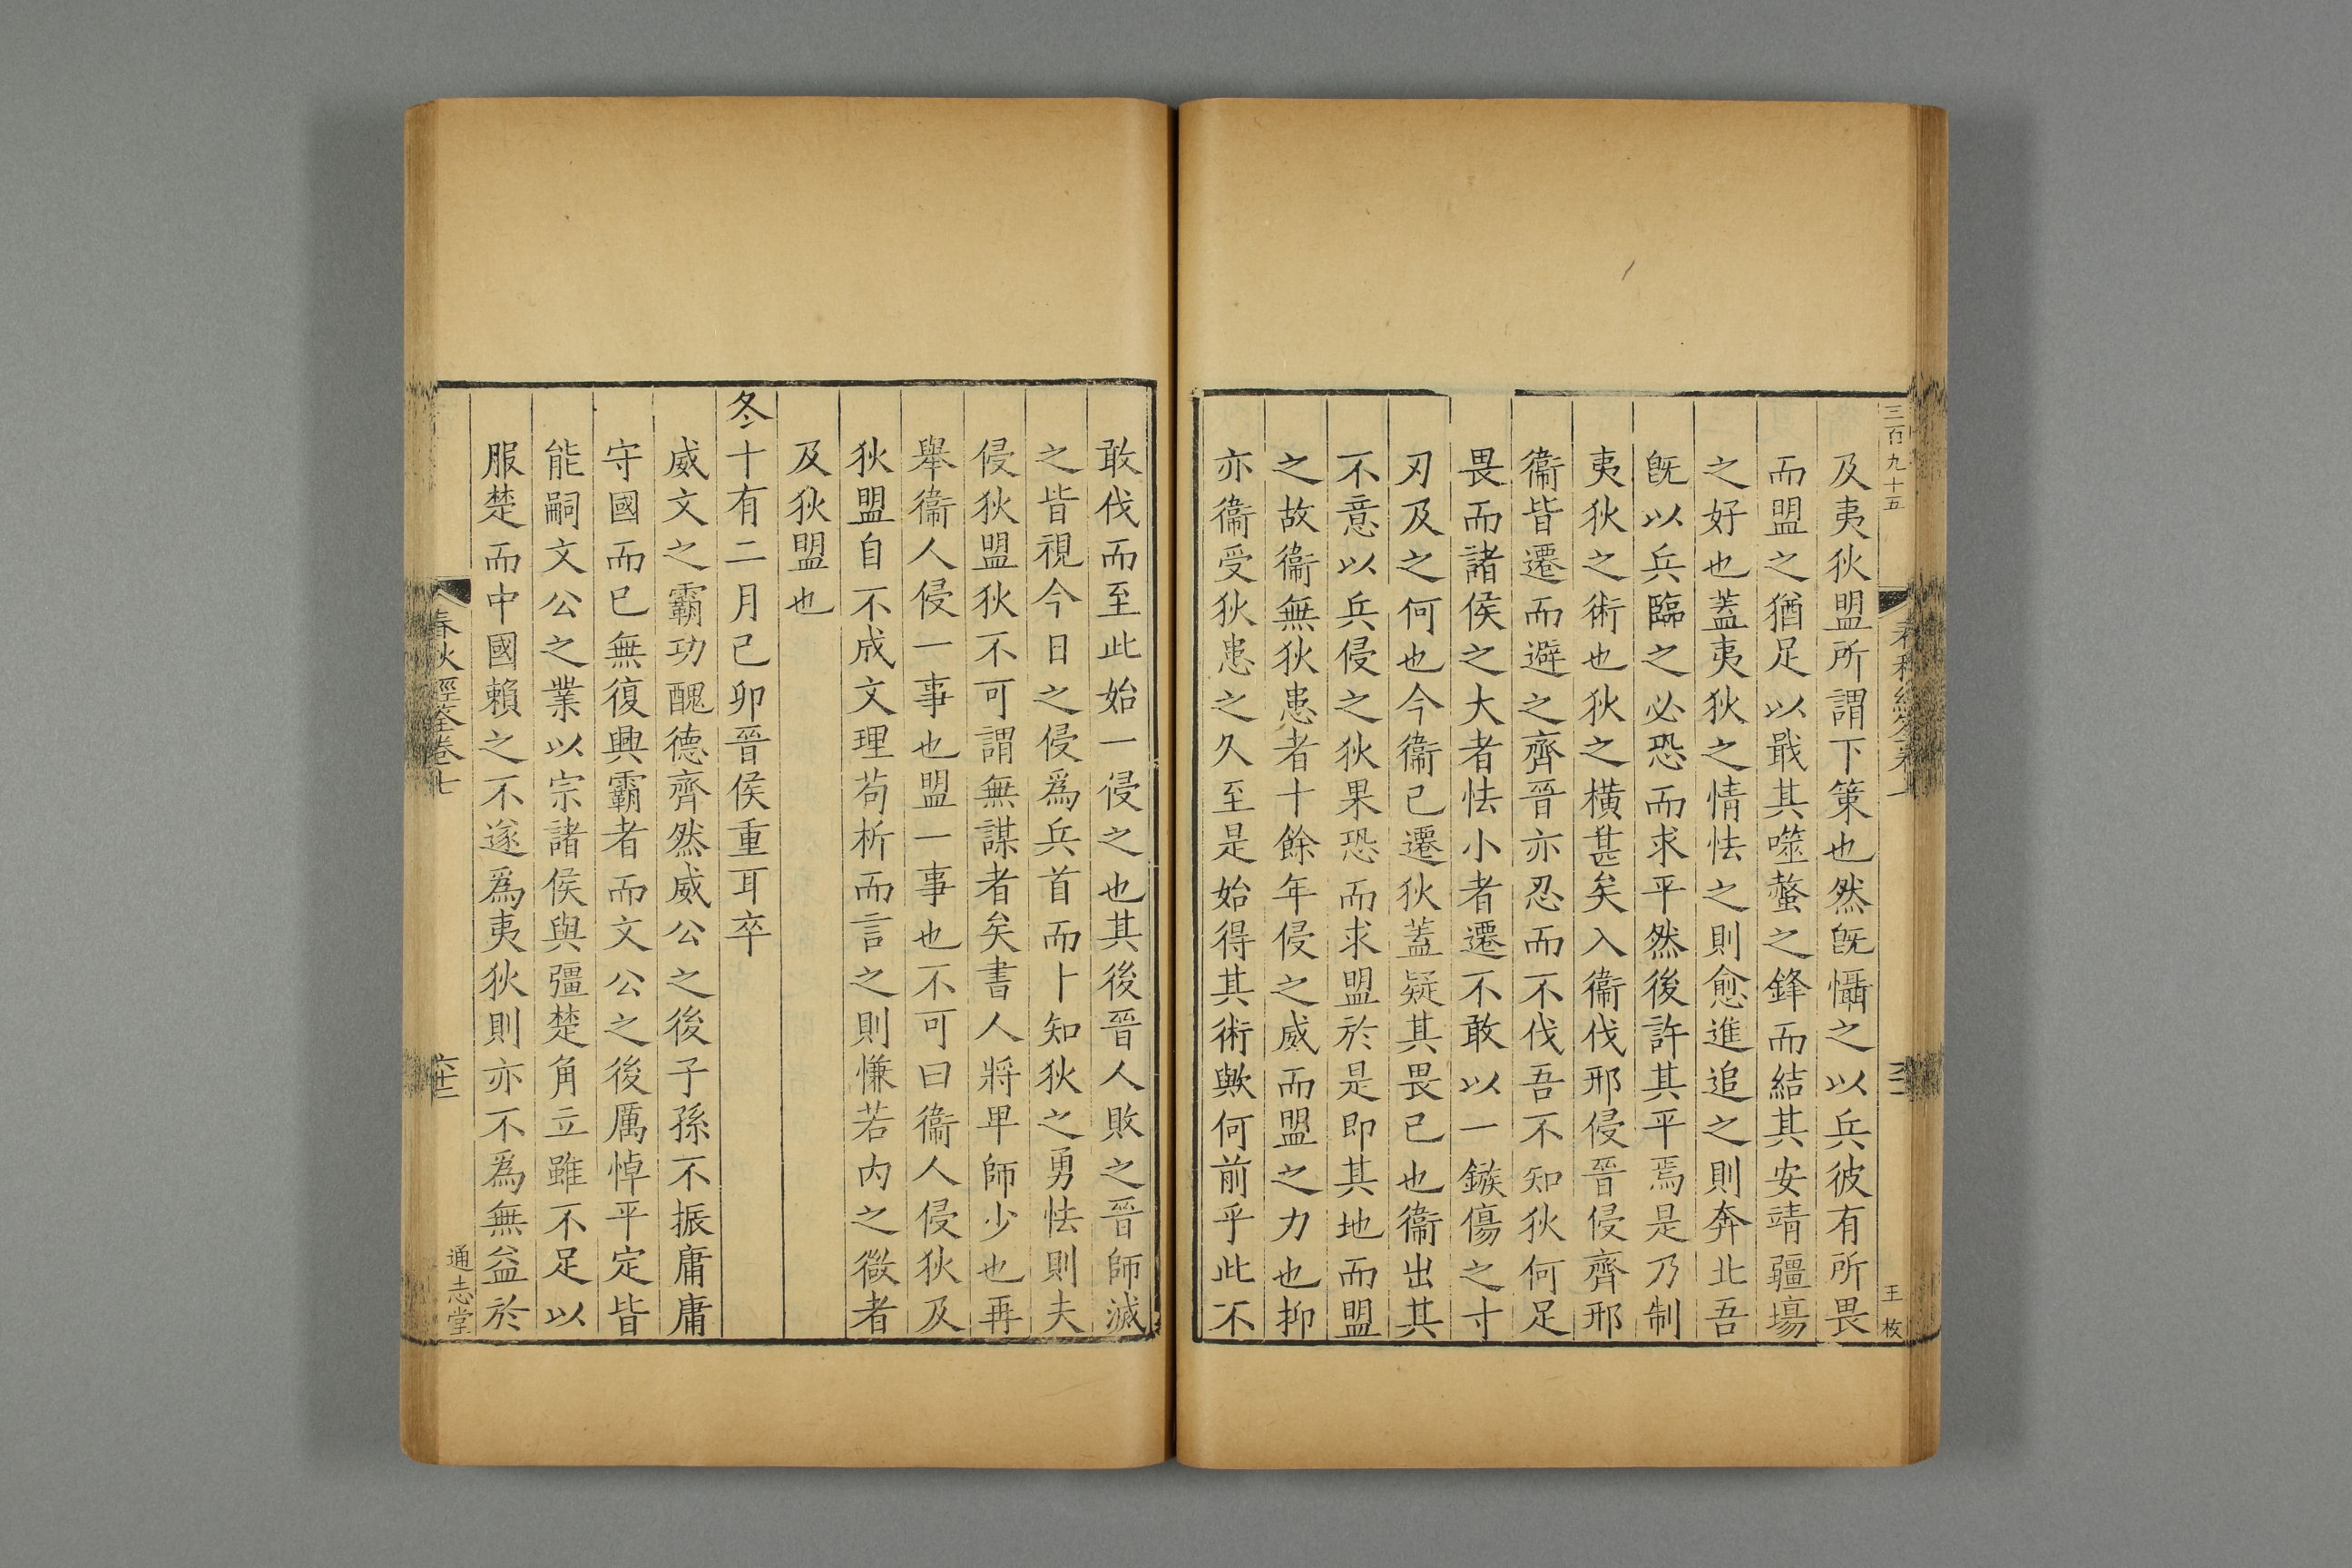 三百九十五
及夷狄盟所謂下策也然旣懾之以兵彼有所畏
而盟之猶足以戢其噬螫之鋒而結其安靖疆埸
之好也蓋夷狄之情怯之則愈進追之則奔北吾
旣以兵臨之必恐而求平然後許其平焉是乃制
夷狄之術也狄之橫甚矣入衞伐邢侵晉侵齊邢
衞皆遷而避之齊晉亦忍而不伐吾不知狄何足
畏而諸侯之大者怯小者遷不敢以一鏃傷之寸
刃及之何也今衞已遷狄蓋疑其畏已也衞出其
不意以兵侵之狄果恐而求盟於是即其地而盟
之故衞無狄患者十餘年侵之威而盟之力也抑
亦衞受狄患之久至是始得其術歟何前乎此不
敢伐而至此始一侵之也其後晉人敗之晉師滅
之皆視今日之侵爲兵首而卜知狄之勇怯則夫
侵狄盟狄不可謂無謀者矣書人將卑師少也再
舉衞人侵一事也盟一事也不可曰衞人侵狄及
狄盟自不成文理苟析而言之則慊若内之微者
及狄盟也
冬十有二月己卯晉侯重耳卒
威文之霸功醜德齊然威公之後子孫不振庸庸
守國而已無復興霸者而文公之後厲悼平定皆
能嗣文公之業以宗諸侯與彊楚角立雖不足以
服楚而中國賴之不遂爲夷狄則亦不爲無益於
春秋經筌卷七
通志堂